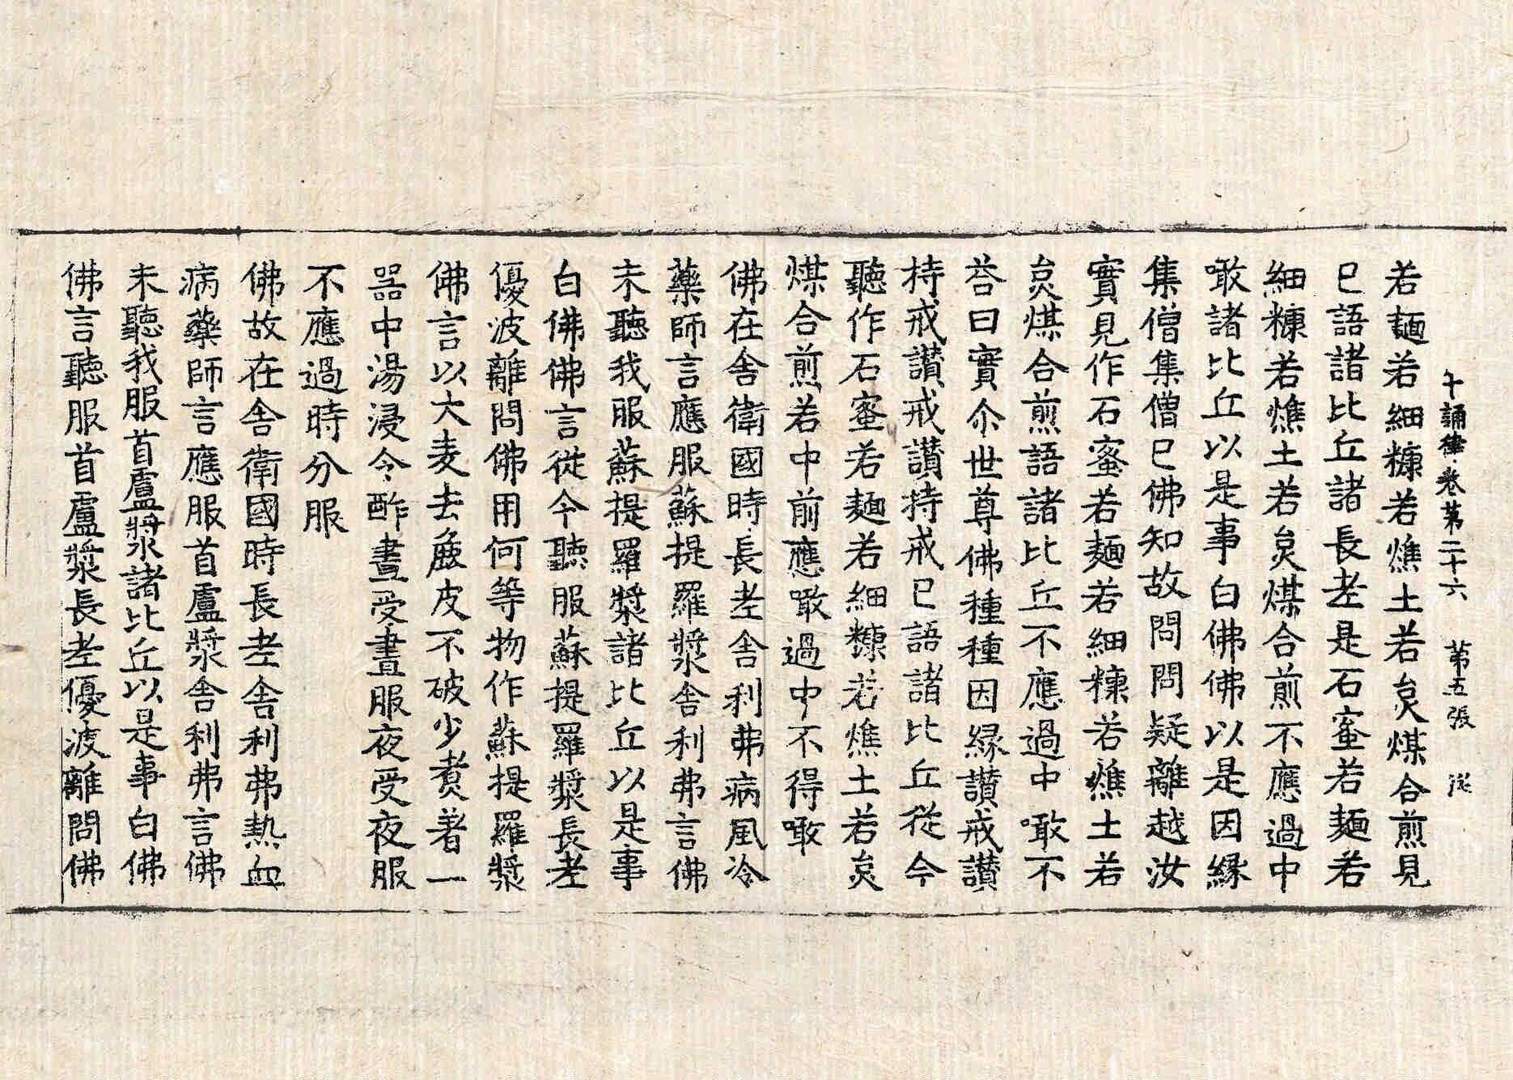 十誦律卷第二十六 第五張
若麺若細糠若燋土若炱煤合煎見
已語諸比丘諸長老是石蜜若麺若
細糠若燋土若炱煤合煎不應過中
噉諸比丘以是事白佛佛以是因緣
集僧集僧已佛知故問問疑離越汝
實見作石蜜若麺若細糠若燋土若
炱煤合煎語諸比丘不應過中噉不
荅曰實尒世尊佛種種因緣讃戒讃
持戒讃戒讃持戒已語諸比丘從今
聽作石蜜若麺若細糠若燋土若炱
煤合煎若中前應噉過中不得噉
佛在舍衛國時長老舍利弗病風冷
藥師言應服蘇提羅漿舍利弗言佛
未聽我服蘇提羅漿諸比丘以是事
白佛佛言從今聽服蘇提羅漿長老
優波離問佛用何等物作蘇提羅漿
佛言以大麦去麁皮不破少煑著一
器中湯浸令酢晝受晝服夜受夜服
不應過時分服
佛故在舍衛國時長老舍利弗熱血
病藥師言應服首盧漿舍利弗言佛
未聽我服首盧漿諸比丘以是事白佛
佛言聽服首盧漿長老優波離問佛